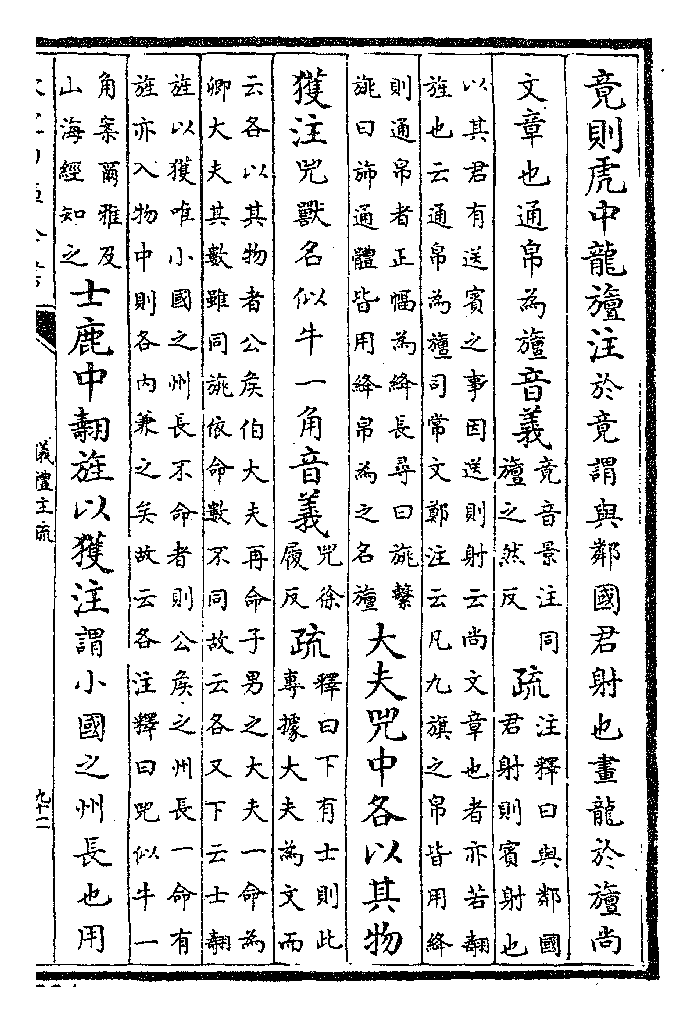 竟則虎中龍旜注於竟謂與鄰國君射也畫龍於旜尚
文章也通帛為旜音義
竟音景注同
旜之然反
疏
注釋曰與鄰國
君射則賓射也
以其君有送賓之事因送則射云尚文章也者亦若翿
旌也云通帛為旜司常文鄭注云凡九旗之帛皆用絳
則通帛者正幅為絳長尋曰旐繫
旐曰旆通體皆用絳帛為之名旜
大夫兕中各以其物
獲注兕獸名似牛一角音義
兕徐
履反
疏
釋曰下有士則此
專據大夫為文而
云各以其物者公侯伯大夫再命子男之大夫一命為
卿大夫其數雖同旐依命數不同故云各又下云士翿
旌以獲唯小國之州長不命者則公侯之州長一命有
旌亦入物中則各內兼之矣故云各注釋曰兕似牛一
角案爾雅及
山海經知之
士鹿中翿旌以獲注謂小國之州長也用
儀禮注疏
九十二